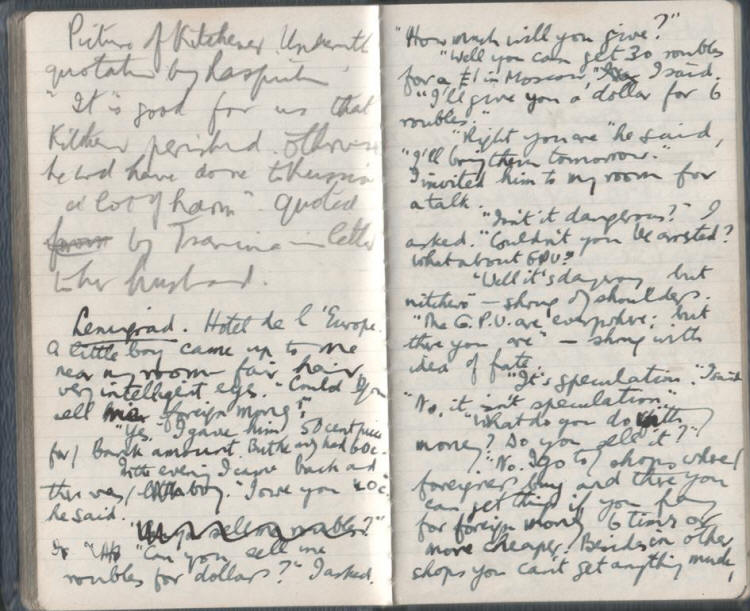 Picture of Kitchener. Underneath
quotation by Rasputin
"It is good for us that
Kitchener perished otherwise
he wd have done to Russia
a lot of harm" quoted
from by Tsarina in letter
to her husband.
Leningrad. Hotel de l'Europe.
A little boy came up to me
near my room fair hair,
very intelligent eyes. "Could you
sell me foreign money?"
"Yes." I gave him 50 cent piece
for bank amount. But he only had 60c.
In the evening I came back and
there was little boy. "I owe you 10c"
he said.
sell me roubles?"
"Can you sell me
roubles for dollars?" I asked.
"How much will you give?"
"Well you can get 30 roubles
for a £1 in Moscow," I said.
"I'll give you a dollar for 6
roubles."
"Right you are" he said,
"I'll bring them tomorrow."
I invited him to my room for
a talk.
"Isn't it dangerous?" I
asked. "Couldn't you be arrested?
What about GPU?"
"Well it's dangerous but
nitchevo" – shrug of shoulders.
"The G.P.U. are everywhere; but
there you are" – shrug with
idea of fate.
"It's speculation." I said
"No, it isn't speculation."
"What do you do with
money? Do you sell it?"
"No. I go to shops where
foreigners buy and there you
can get things if you pay
for foreign money 6 times or
more cheaper. Besides in other
shops you can't get anything much,